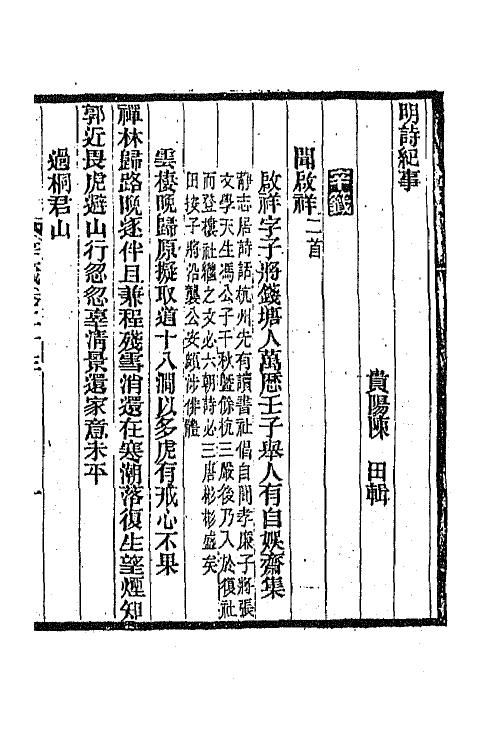 明詩紀事
辛籤
貴陽陳　田輯
聞啟祥二首
啟祥字子將錢塘人萬歷壬子舉人有自娛齋集
靜志居詩話杭州先有讀書社倡自聞孝廉子將張
文學天生馮公子千秋暨餘杭三嚴後乃入於復社
而登樓社繼之文必六朝詩必三唐彬彬盛矣
田按子將沿襲公安頗涉俳體
雲棲晚歸原擬取道十八澗以多虎有戒心不果
禪林歸路晚逐伴且兼程殘雪消還在寒潮落復生望煙知
郭近畏虎避山行忽忽辜清景還家意未平
過桐君山